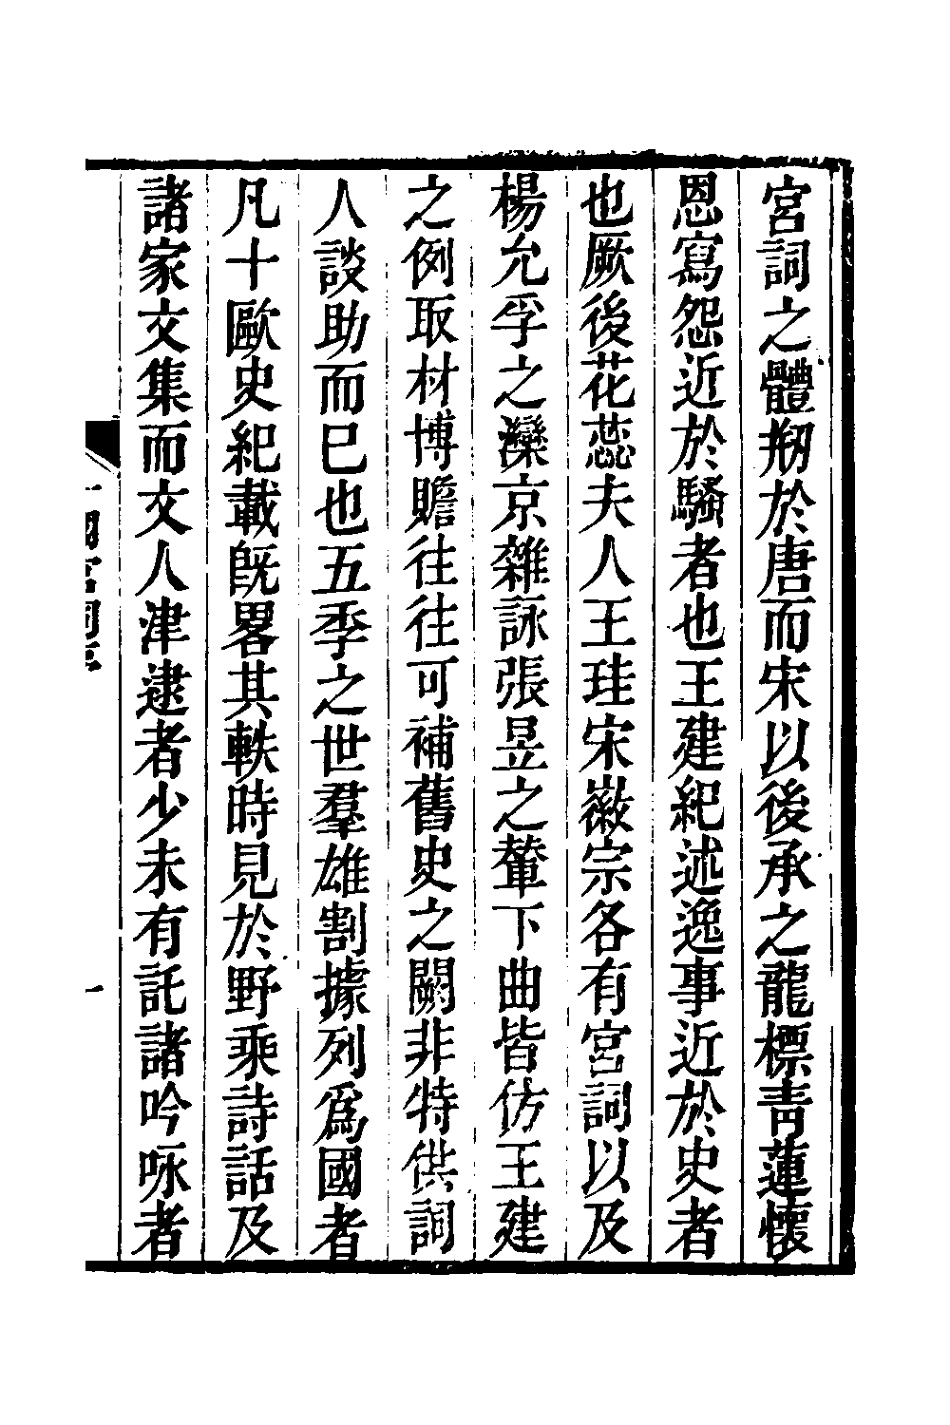 宮詞之體剏於唐而宋以後承之龍標青蓮懷
恩寫怨近於騷者也王建紀述逸事近於史者
也厥後花蕊夫人王珪宋徽宗各有宮詞以及
楊允孚之灤京雜詠張昱之輦下曲皆仿王建
之例取材博贍往往可補舊史之闕非特供詞
人談助而已也五季之世羣雄割據列爲國者
凡十歐史紀載旣畧其軼時見於野乘詩話及
諸家文集而文人津逮者少未有託諸吟咏者
一